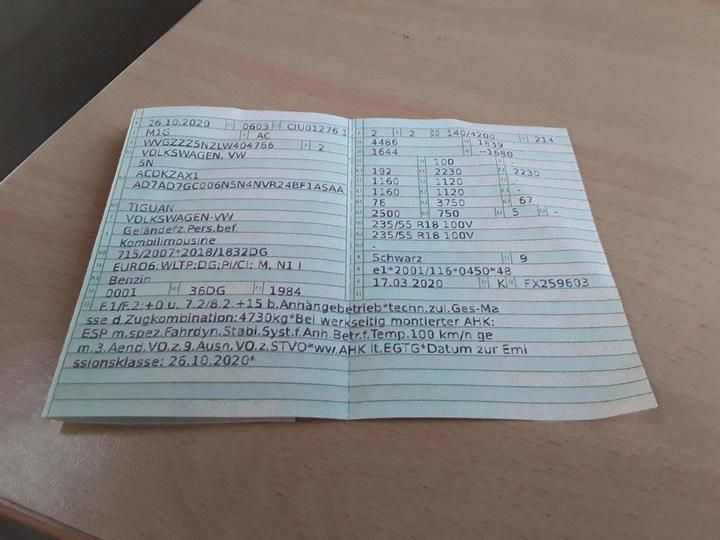 26.10.2020 0603 CIU01276 1
M1G AC
WVGZZZ5NZLW404766 2
VOLKSWAGEN, VW
5N
ACDKZAX1
AD7AD7GC006N5N4NVR24BF1ASAA
TIGUAN
VOLKSWAGEN-VW
Geländefz.Pers.bef
Kombilimousine
715/2007*2018/1832DG
EURO6;WLTP;DG;PI/CI; M, N1 I
Benzin
0001 36DG 1984
2 2 140/4200 214
4486 1839
1644 -1680
100 -
192 2230 2230
1160 1120 -
1160 1120 -
76 3750 67
2500 750 5 -
235/55 R18 100V
235/55 R18 100V
-
Schwarz 9
e1*2001/116*0450*48
17.03.2020 K FX259603
F.1/F.2:+0 u. 7.2/8.2:+15 b.Anhängebetrieb*techn.zul.Ges-Ma
sse d.Zugkombination:4730kg*Bei werkseitig montierter AHK:
ESP m.spez.Fahrdyn.Stabi.Syst.f.Anh.Betr.f.Temp.100 km/h ge
m.3.Aend.VO.z.9.Ausn.VO.z.STVO*ww.AHK lt.EGTG*Datum zur Emi
ssionsklasse: 26.10.2020*